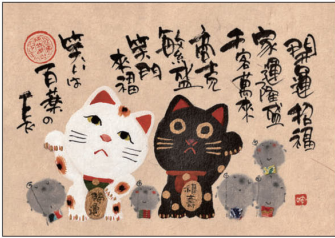 開運招福
家運隆盛
千客萬来
商売
繁盛
笑門
来福
笑いは
百薬の
長
開運
福寿